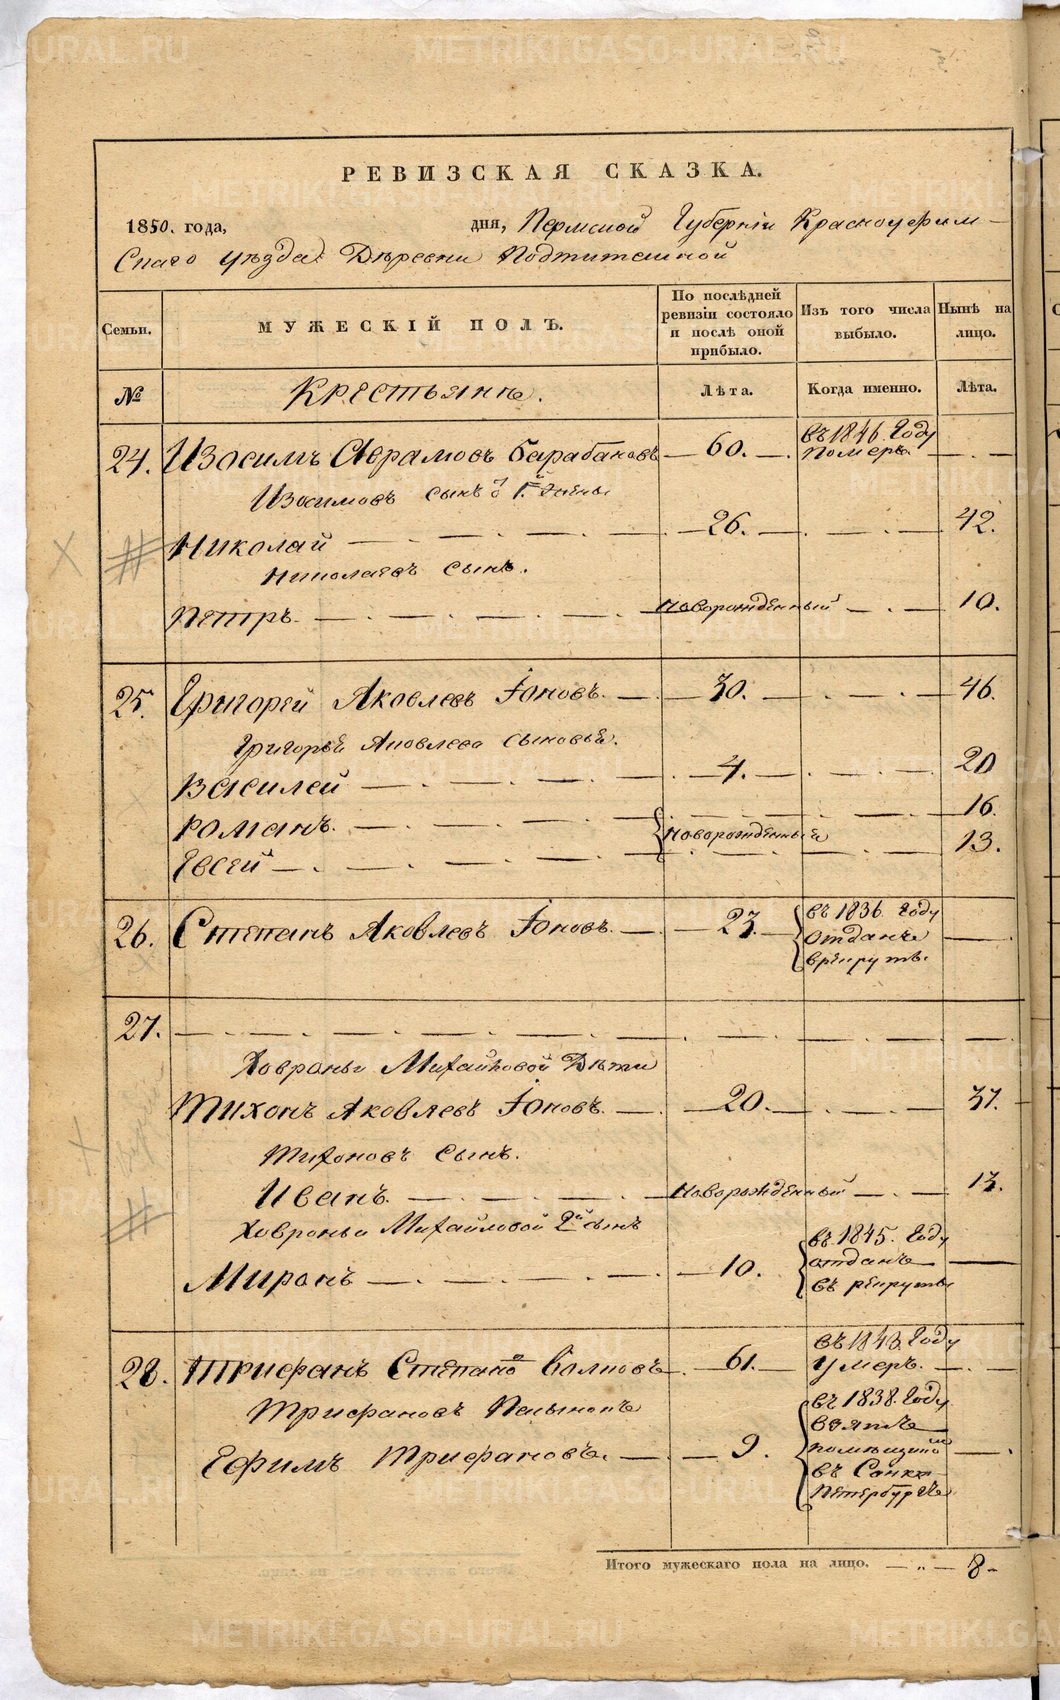 РЕВИЗСКАЯ СКАЗКА.
1850. года, дня, Пермской Губерніи Красноуфим-
скаго уѣзда Деревни
Семьи. МУЖЕСКІЙ ПОЛЪ. По послѣдней ревизіи состояло и послѣ оной прибыло. Изъ того числа выбыло. Нынѣ на лицо.
№ Крестьяне. Лѣта. Когда именно. Лѣта.
24. Изосимъ Аврамовъ Барабановъ 60. въ 1846. Году померъ
Изосимовъ сынъ
Николай 26. 42.
Николаевъ сынъ.
Петръ новорожденный 10.
25. Григорей Яковлевъ Іоновъ. 30. 46.
Григорья Яковлева сыновья.
Василей 4. 20
Романъ. 16.
Евсей новорожденныя 13.
26. Степанъ Яковлевъ Іоновъ. 23. въ 1836. Году
отданъ
врекруты.
27.
Ховроньи Михайловой Дѣти
Тихонъ Яковлевъ Іоновъ. 20. 37.
Тихоновъ сынъ.
Иванъ. новорожденный 13.
Ховроньи Михайловой 2й сынъ
Миронъ 10. въ 1845. Году
отданъ
въ рекруты
28. Трифанъ Степановъ Волковъ 61. въ 1843. Году
умеръ.
Трифановъ
Ефимъ Трифановъ. 9. въ 1838. Году
взятъ
въ Санкт-
Петербургъ
Итого мужескаго пола на лицо. 8
METRIKI.GASO-URAL.RU